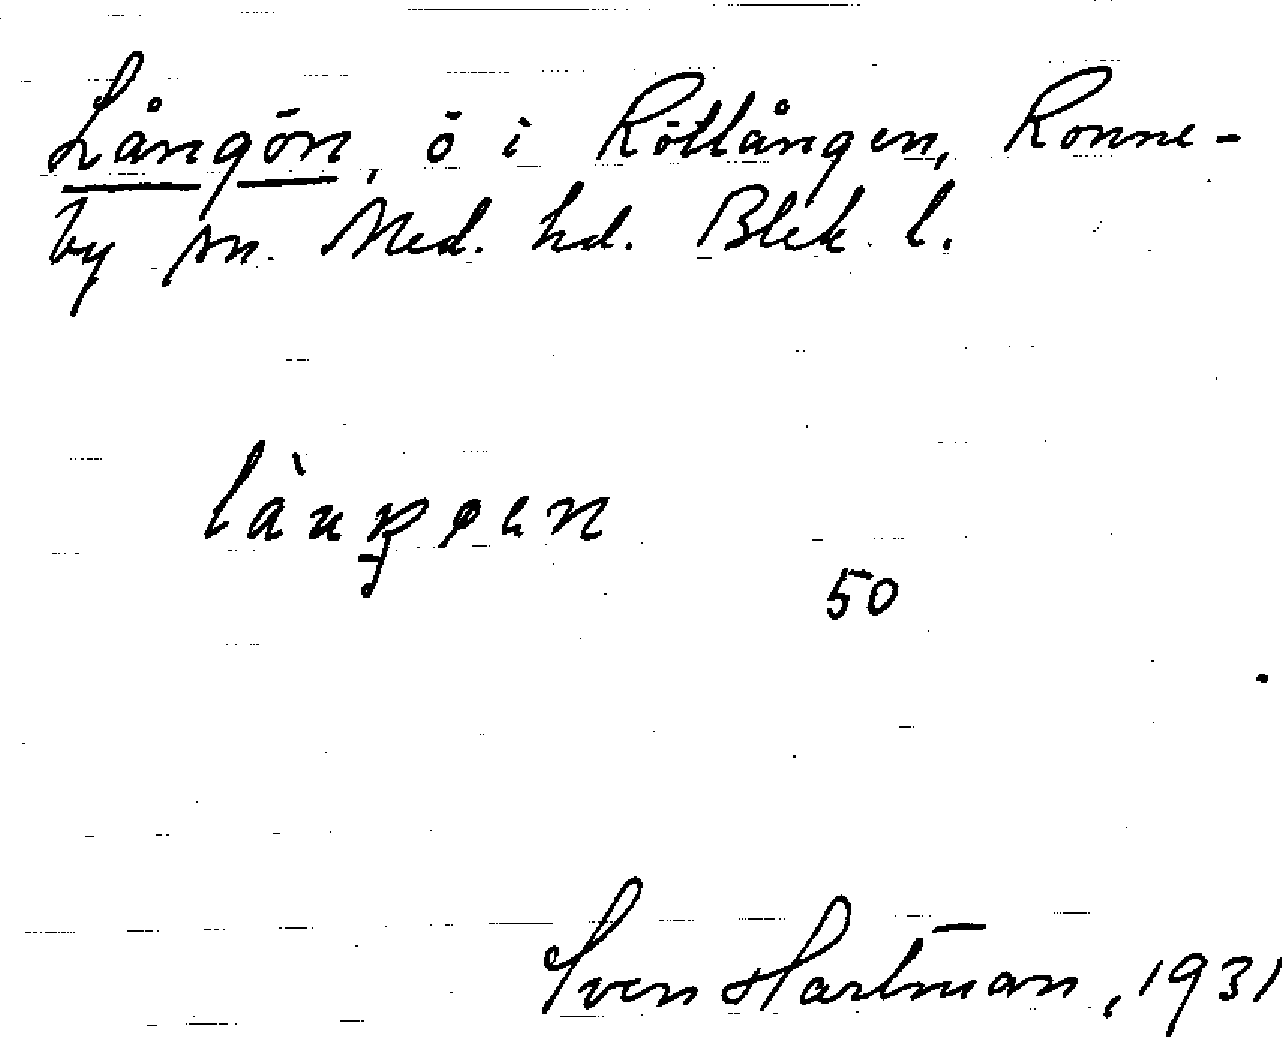 Långön, ö i Rötlången, Ronne-
by sn. Med. hd. Blek. l.
50
Sven Hartman, 1931